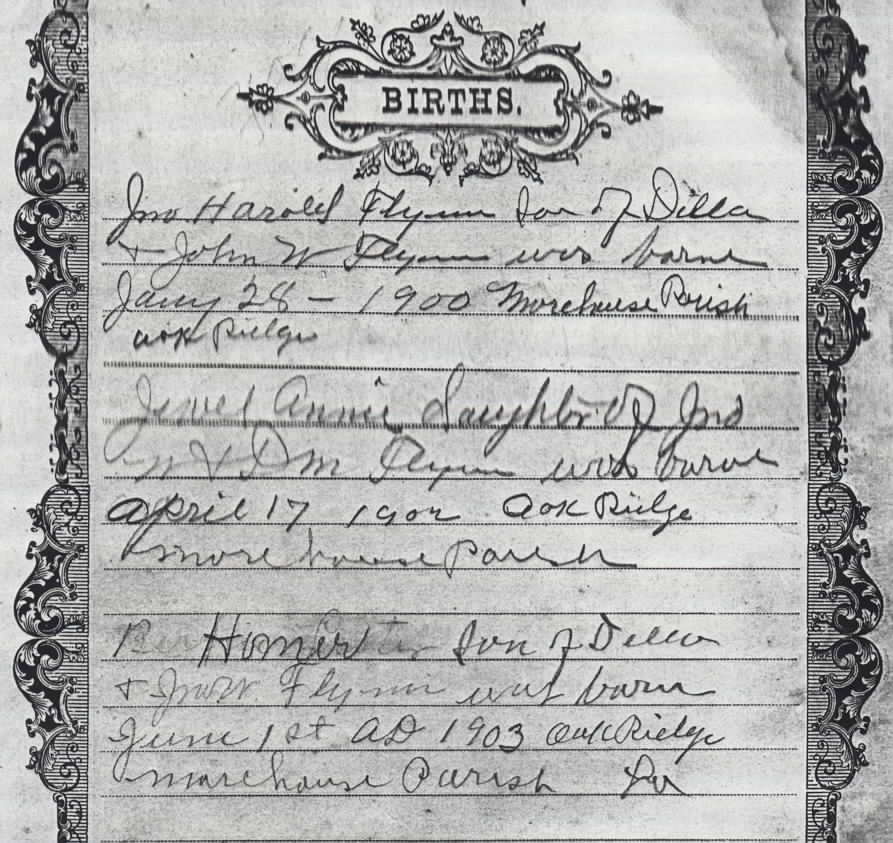 BIRTHS.
Jno Harold Flynn Son of Della
+ John W Flynn was barne
Jany 28 - 1900 Morehouse Parish
aok Ridge
Jewel Annie daughter of Jno
W + D M Flynn was barne
April 17 1902 Aok Ridge
morehouse Parish
Homer Son of Della
+ Jno W. Flynn was barn
June 1st AD 1903 Oak Ridge
morehouse Parish La